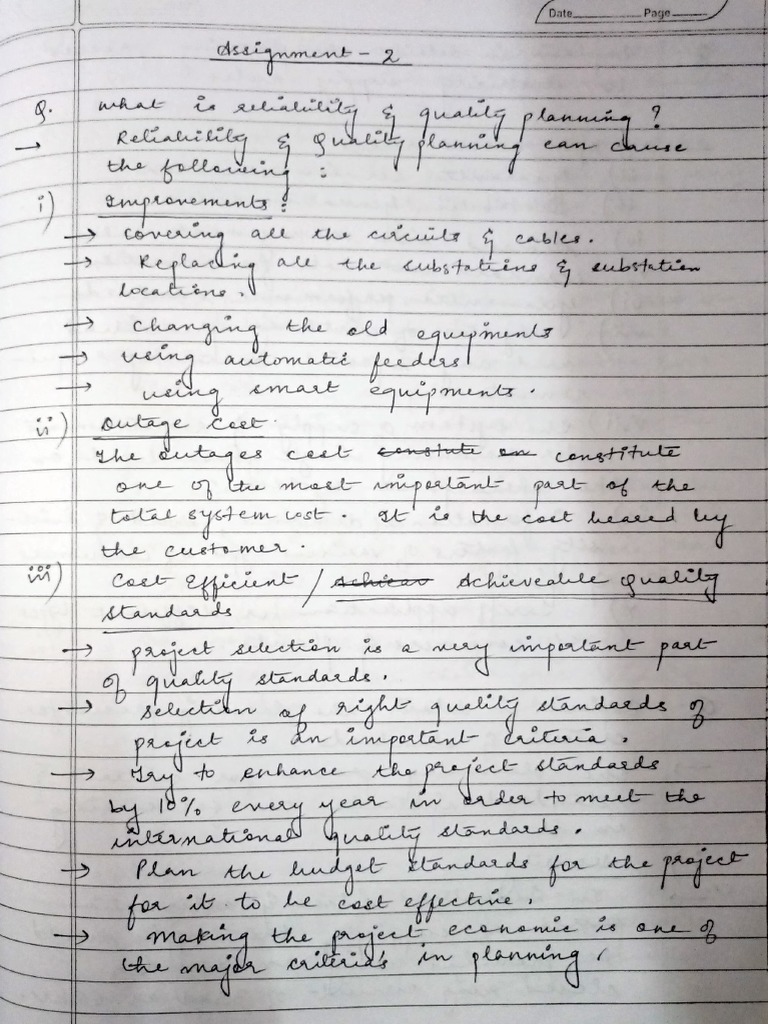 Date Page
Assignment - 2
Q. What is reliability & quality planning ?
→ Reliability & Quality planning can cause
the following :
i) Improvements :
→ covering all the circuits & cables.
→ Replacing all the substations & substation
locations.
→ changing the old equipments
→ using automatic feeders
→ using smart equipments.
ii) Outage Cost.
The outages cost constute on constitute
one of the most important part of the
total system cost. It is the cost beared by
the customer.
iii) Cost Efficient / Achieav Achieveable Quality
Standards
→ project selection is a very important part
of quality standards.
→ Selection of right quality standards of
project is an important criteria.
→ Try to enhance the project standards
by 10% every year in order to meet the
international quality standards.
→ Plan the budget standards for the project
for it to be cost effective.
→ Making the project economic is one of
the major criteria's in planning.